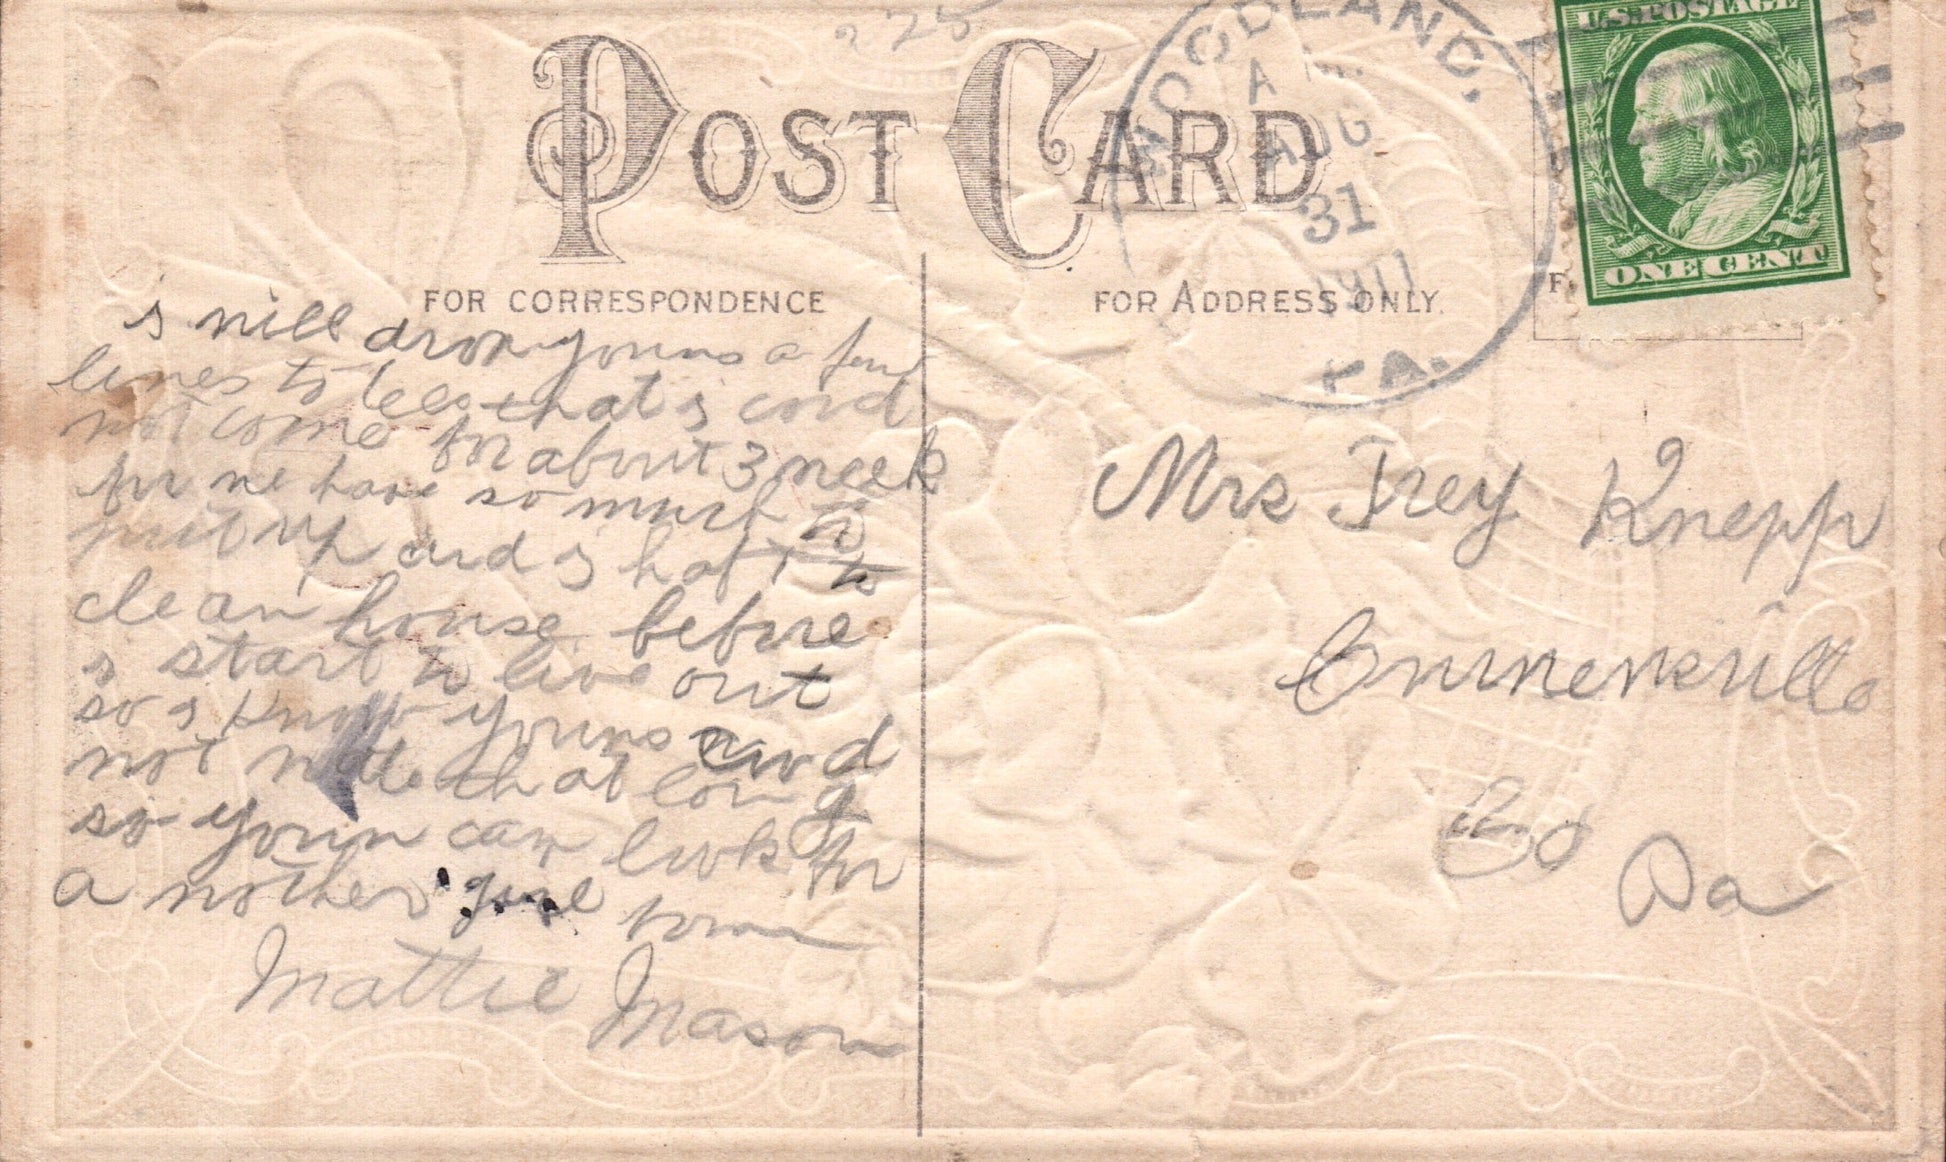 225
POST CARD
WOODLAND,
A M.
AUG
31
1911
PA.
U.S. POSTAGE
ONE CENT
FOR CORRESPONDENCE
FOR ADDRESS ONLY.
i will drop youns a few
lines to that i
not come for about 3 week
for we have so much to
put up and i haft to
clean house before
i start to live out
so i know youns
not that long
so youn can look for
a nother
Mattie Mason
Mrs Trey Knepp
Co
Pa